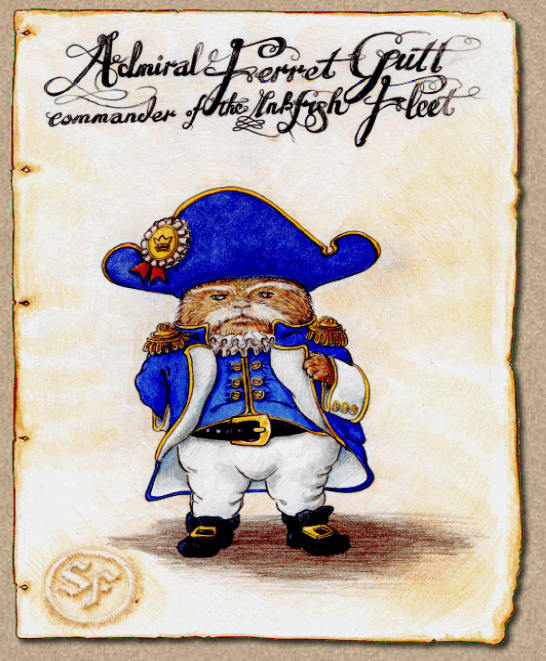 Admiral Ferret Gutt
commander of the Inkfish Fleet
SF